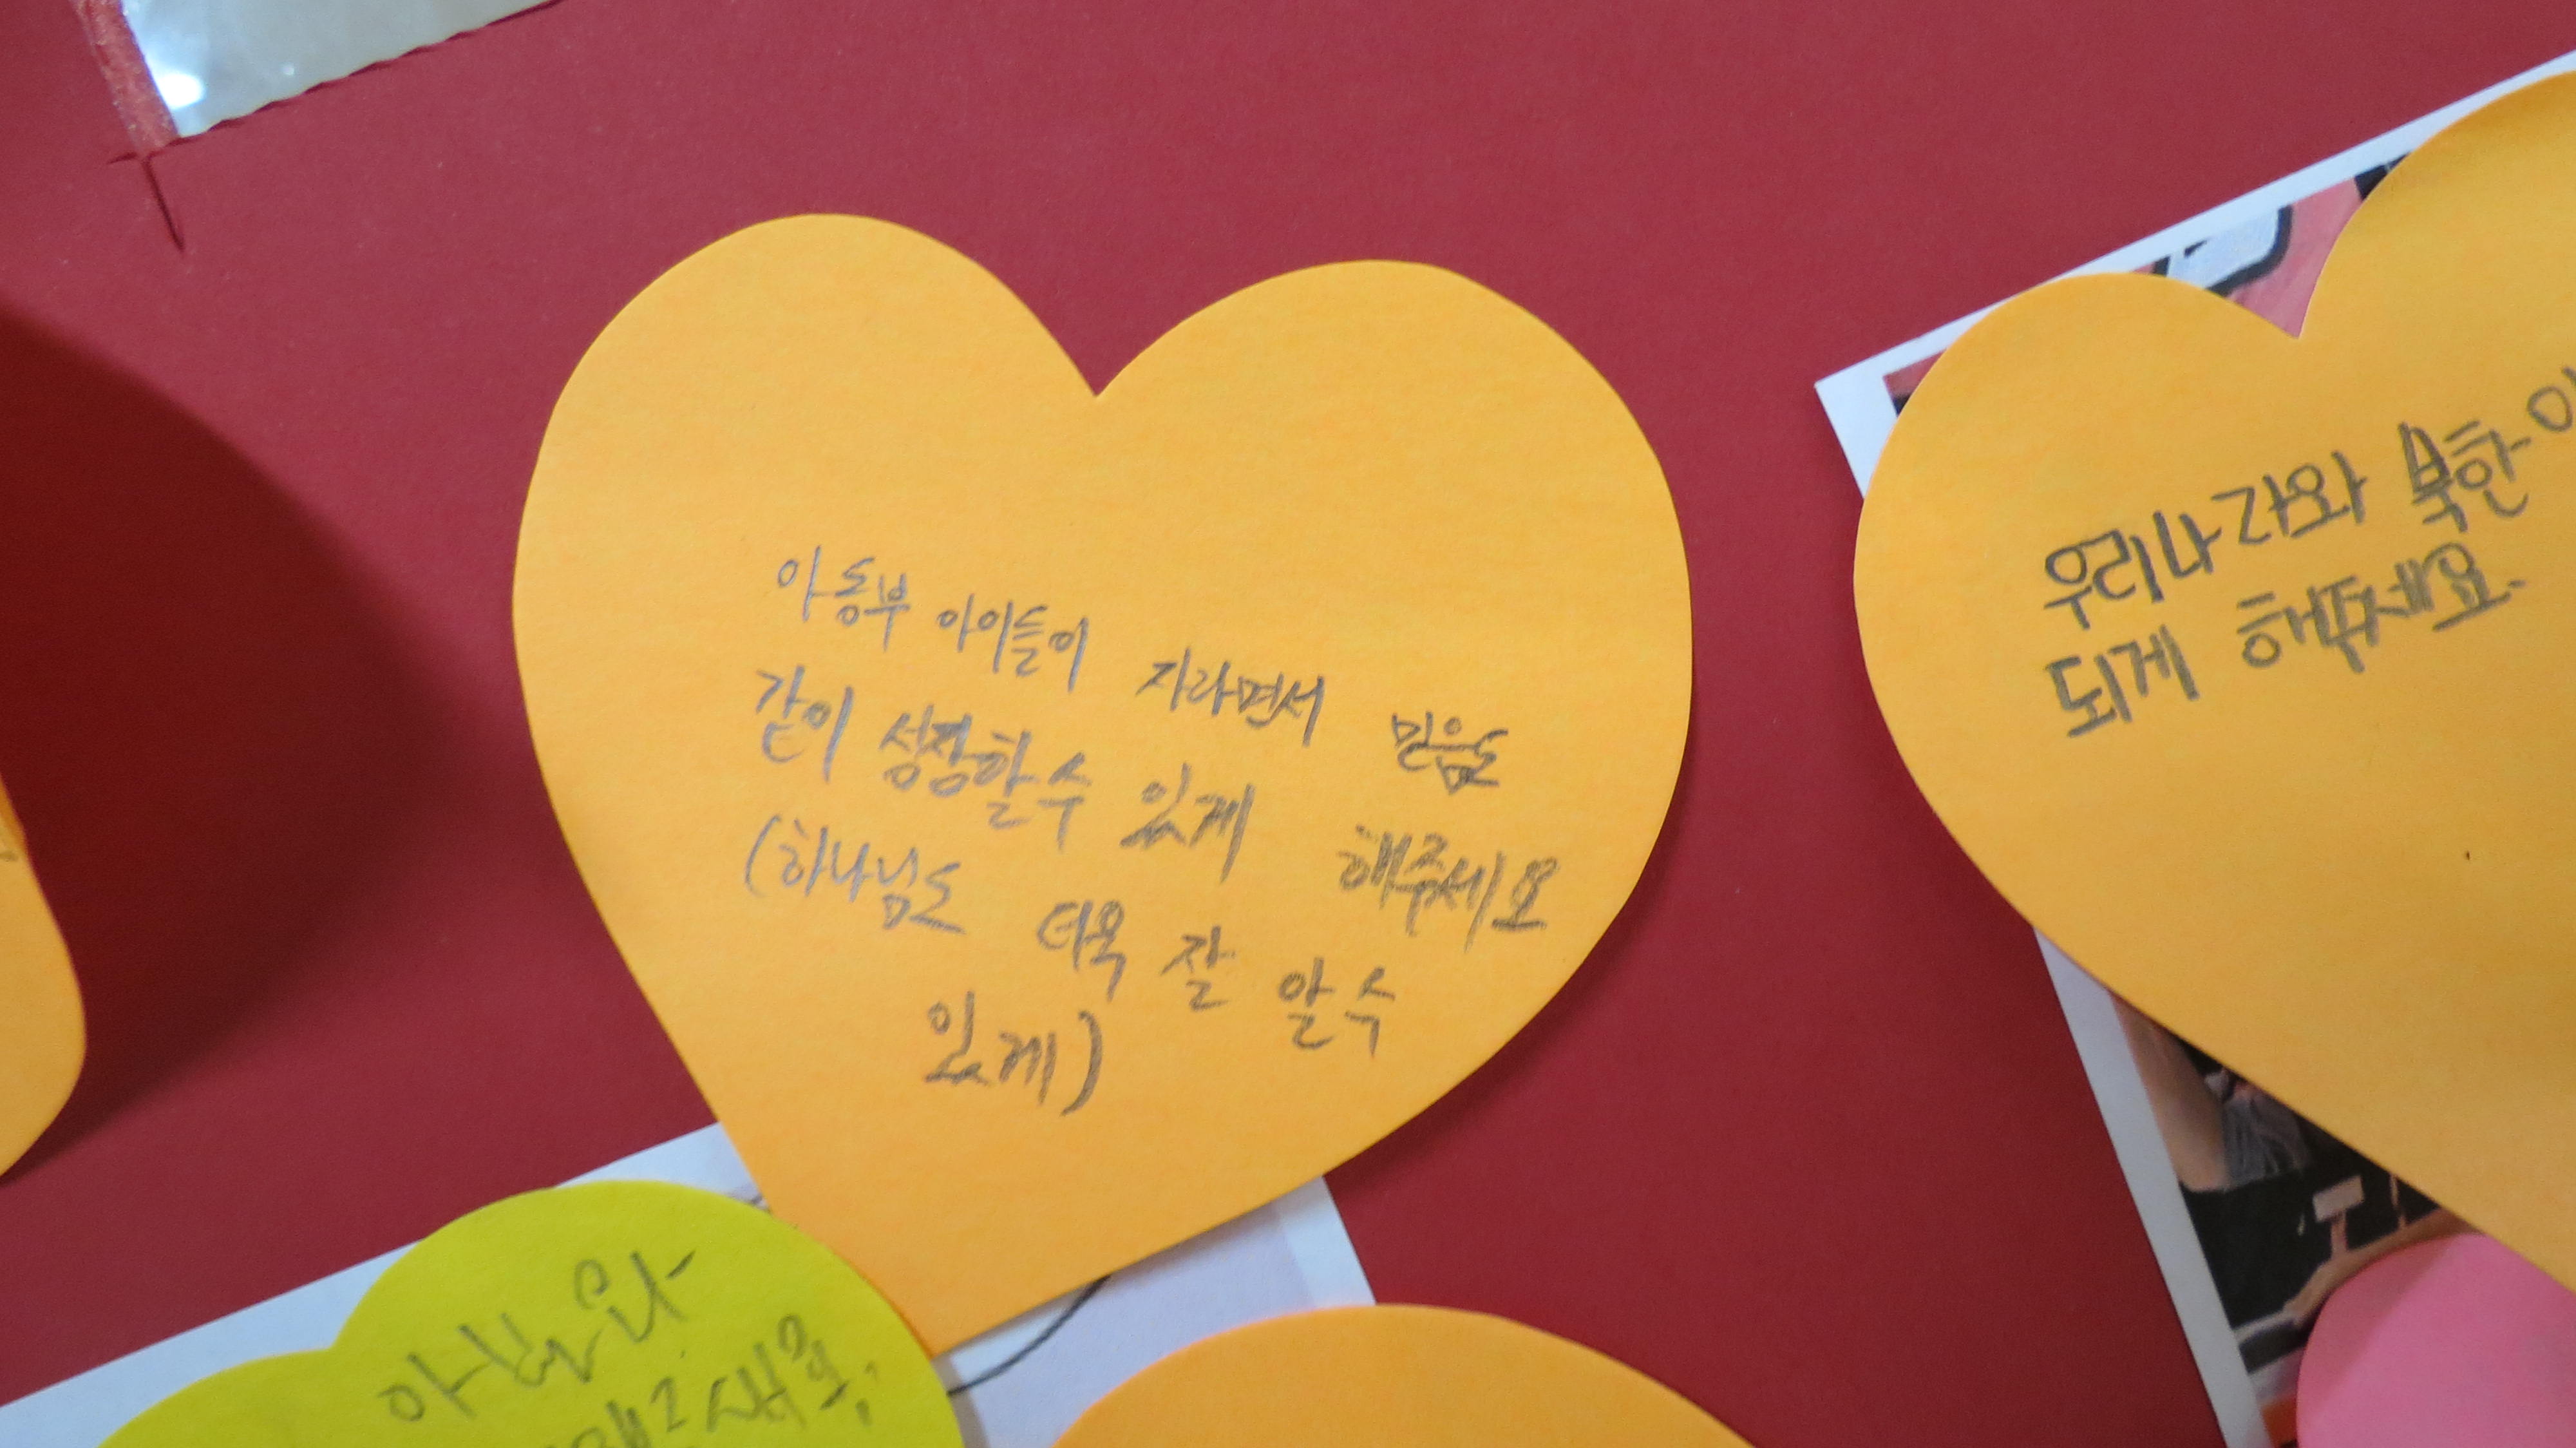 아동부 아이들이 자라면서 믿음도
같이 성장할수 있게 해주세요
(하나님도 더욱 잘 알수
있게)
우리나라와 북한이
되게 해주세요.